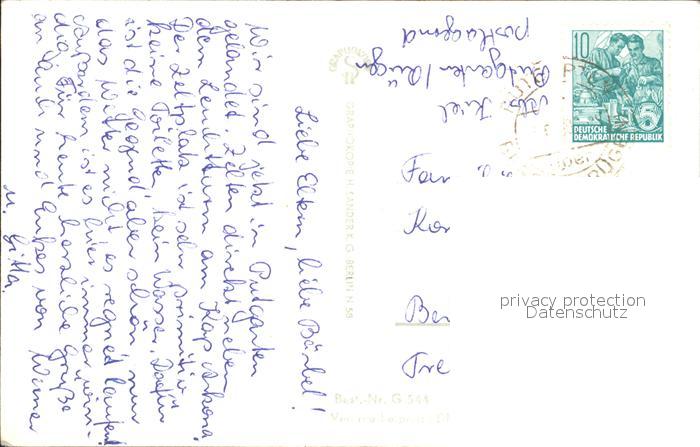 Liebe Eltern, liebe Bärbel!
Wir sind jetzt in Putgarten
gelandet. Zelten direkt neben
dem Leuchtturm am Kap Arkona.
Der Zeltplatz ist sehr primitiv
keine Toiletten, kein Wasser. Dafür
ist die Gegend aber schön, nur
das Wetter nicht, es regnet laufend
außerdem ist es hier immer win-
dig. Für heute herzliche Grüße
an Euch und Anderes von Werner
u. Gitta.
GRAPHOKOPIE H. SANDER K.G. BERLIN N 58
Best.-Nr. G 544
Als Ziel
Putgarten / Rügen
postlagernd
10
5
DEUTSCHE
DEMOKRATISCHE REPUBLIK
Fam
Kor
Ber
Tre
privacy protection
Datenschutz